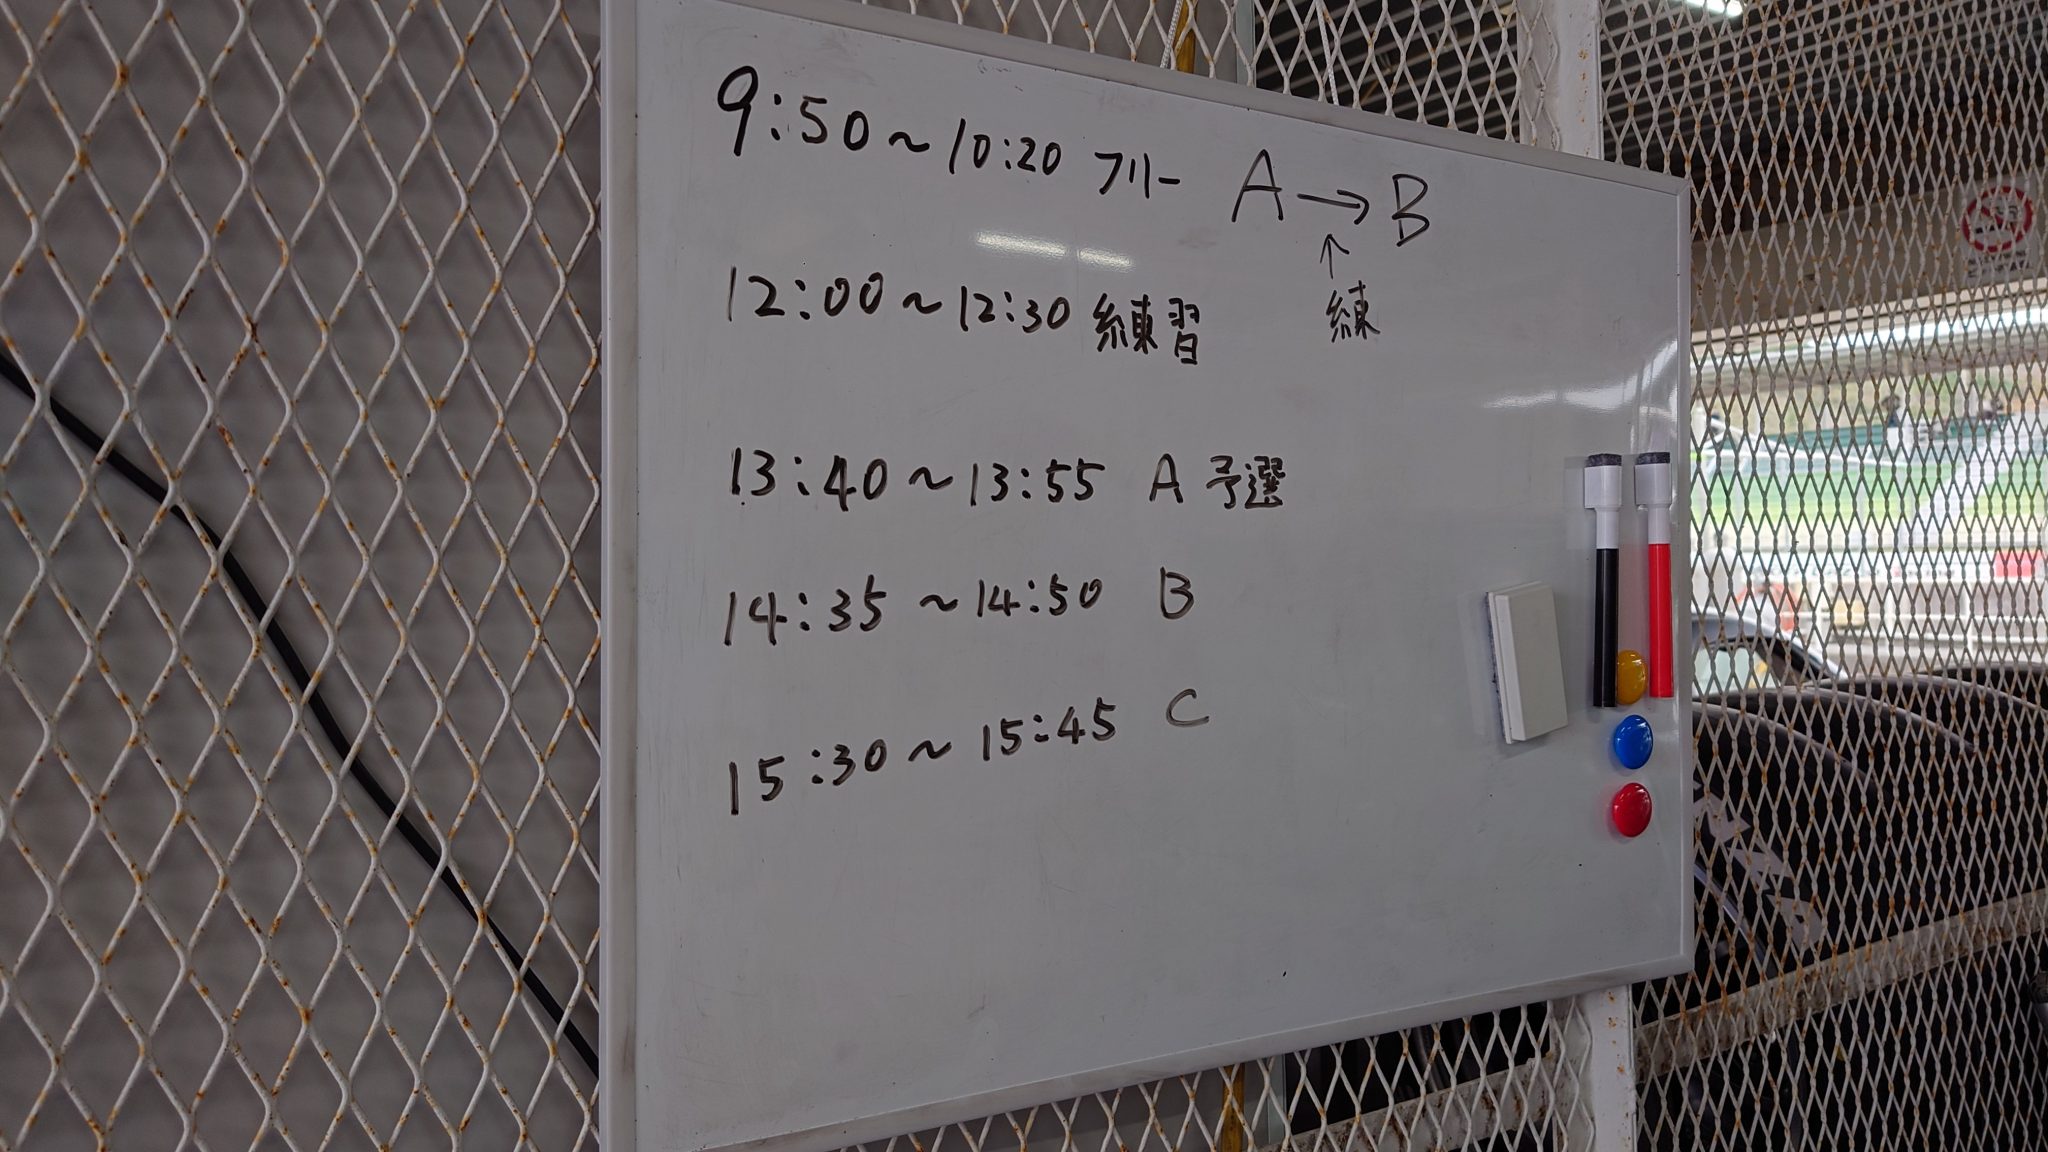 9:50〜10:20 フリー A→B
↑
12:00〜12:30 練習 練
13:40〜13:55 A 予選
14:35〜14:50 B
15:30〜15:45 C